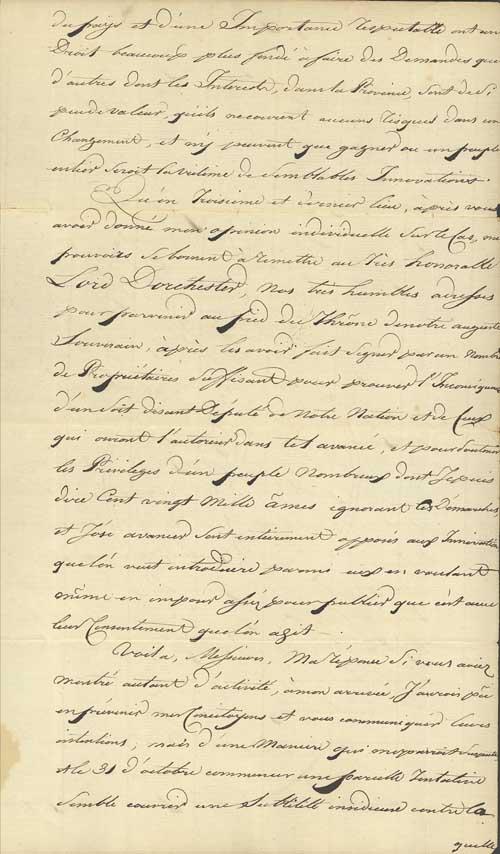 du pays et d'une Importance respectable ont un
Droit beaucoup plus fondé à faire des Demandes que
d'autres dont les Interests, dans la Province, sont de si
peu de valeur, qu'ils ne courent aucuns risques dans un
Changement, et n'y peuvent que gagner ou un peuple
entier seroit la victime de semblables Innovations.
Qu'en troisieme et dernier lieu, àprès vous
avoir donné mon opinion individuelle sur le Cas, mes
pouvoirs se bornent à remettre au très honorable
Lord Dorchester, nos très humbles adresses
pour parvenir au pied du Thrône de notre auguste
Souverain, àprès les avoir fait signer par un nombre
de Propriétaires suffisant pour prouver l'Inconséquence
d'un soit disant Député de notre Nation et de Ceux
qui ont l'autoriser dans tel avancé, et pour soutenir
les Priviléges d'un peuple nombreux dont je puis
dire Cent vingt Mille âmes ignorant les Démarches
et j'ose avancer sont entierement opposés aux Innovations
que l'on veut introduire parmi eux en voulant
même en imposer assez pour publier que c'est avec
leur Consentement que l'on agit.
Voila, Messieurs, Ma réponse si vous aviez
montré autant d'activité, à mon arrivée, J'aurois pû
en prévenir mes Concitoyens et vous communiquer leurs
intentions, mais d'une Maniere qui me paroit
et le 31 d'octobre commencer une pareille Tentative
semble couvrir une subtilité insidieuse contre la
quelle